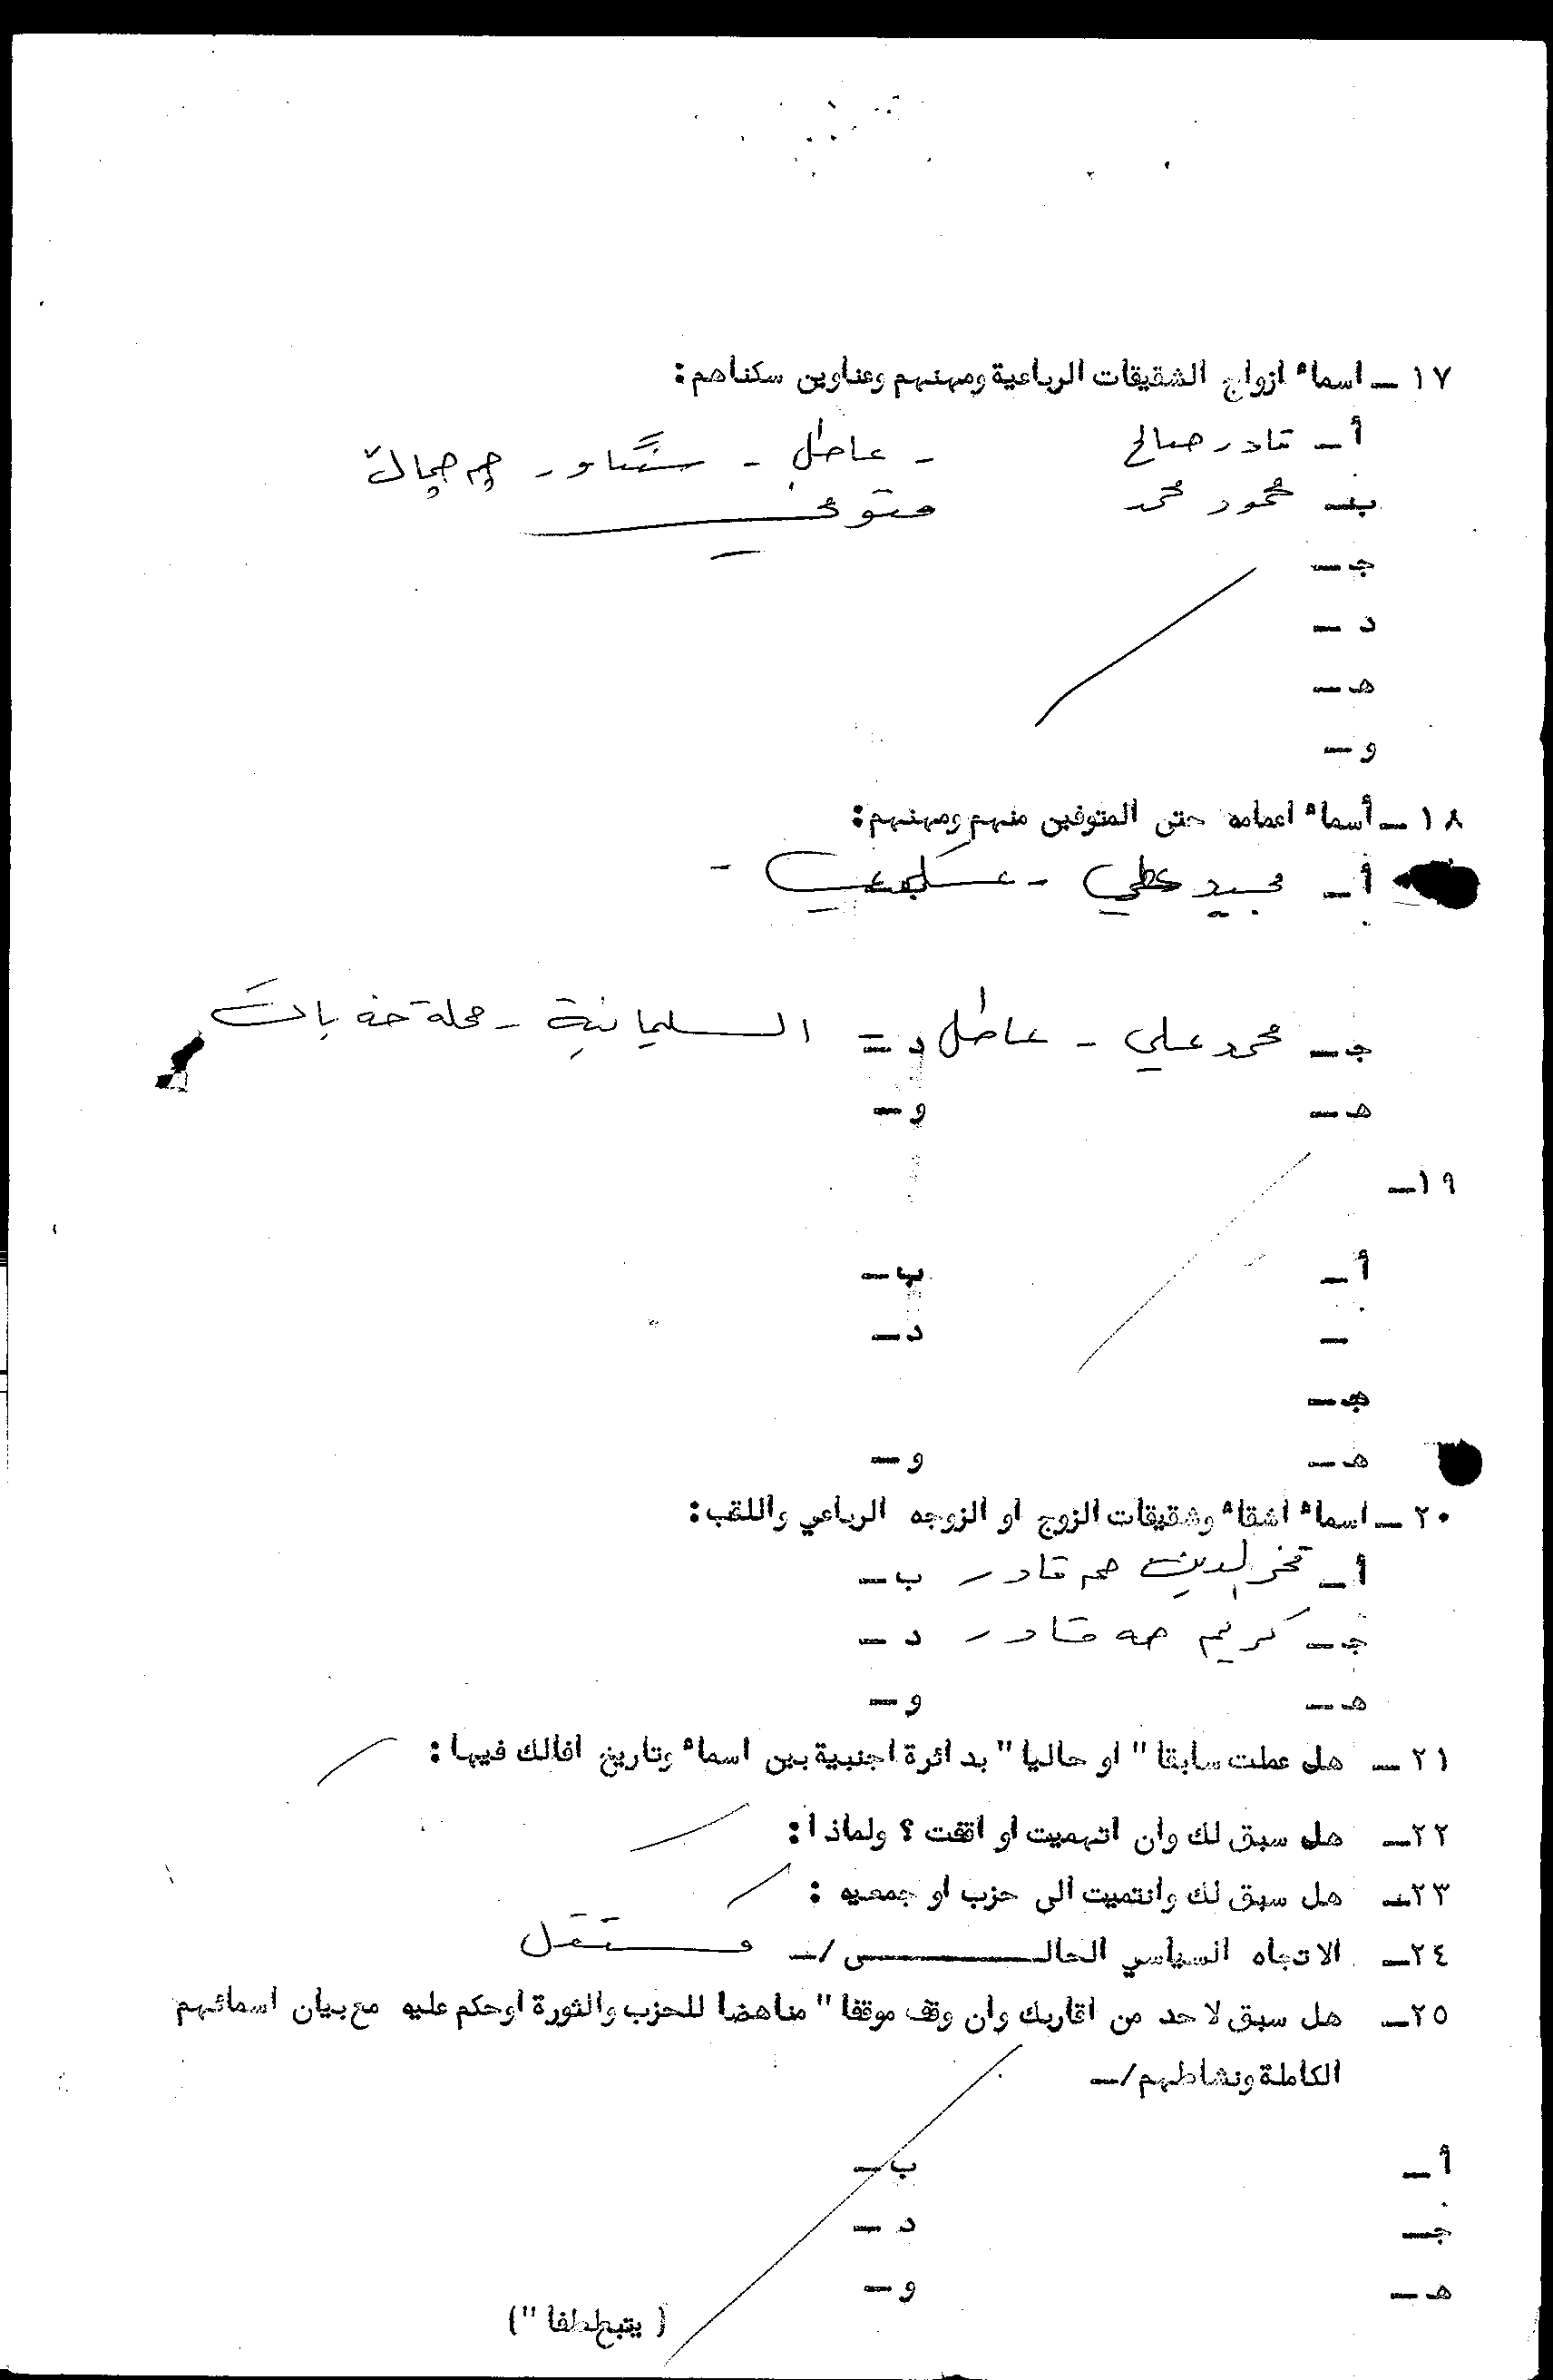 ١٧ ـ اسماء ازواج الشقيقات الرباعية ومهنهم وعناوين سكناهم :
أ ـ قادر صالح - عاطل - شگاو - چم چمال
ب ـ محمود محمد متوفي
ج ـ
د ـ
هـ ـ
و ـ
١٨ ـ أسماء اعمامه حتى المتوفين منهم ومهنهم :
أ ـ مجيد علي -
ج ـ محمد علي - عاطل د = السليمانية - محلة خه بات
هـ ـ و ـ
١٩ ـ
أ ـ ب ـ
ـ د ـ
ج ـ
هـ ـ و ـ
٢٠ ـ اسماء اشقاء وشقيقات الزوج او الزوجه الرباعي واللقب :
أ ـ فخر الدين حمه قادر ب ـ
ج ـ كريم حمه قادر د ـ
هـ ـ و ـ
٢١ ـ هل عملت سابقا " او حاليا " بدائرة اجنبية بين اسماء وتاريخ افالك فيها :
٢٢ ـ هل سبق لك وان اتهميت او اقفت ؟ ولماذا :
٢٣ ـ هل سبق لك وانتميت الى حزب او جمعيه :
٢٤ ـ الاتجاه السياسي الحالـــــى /ـ مستقل
٢٥ ـ هل سبق لاحد من اقاربك وان وقف موقفا " مناهضا للحزب والثورة اوحكم عليه مع بيان اسمائهم
الكاملة ونشاطهم /ـ
أ ـ ب ـ
ج ـ د ـ
هـ ـ و ـ
( يتبع لطفا " )